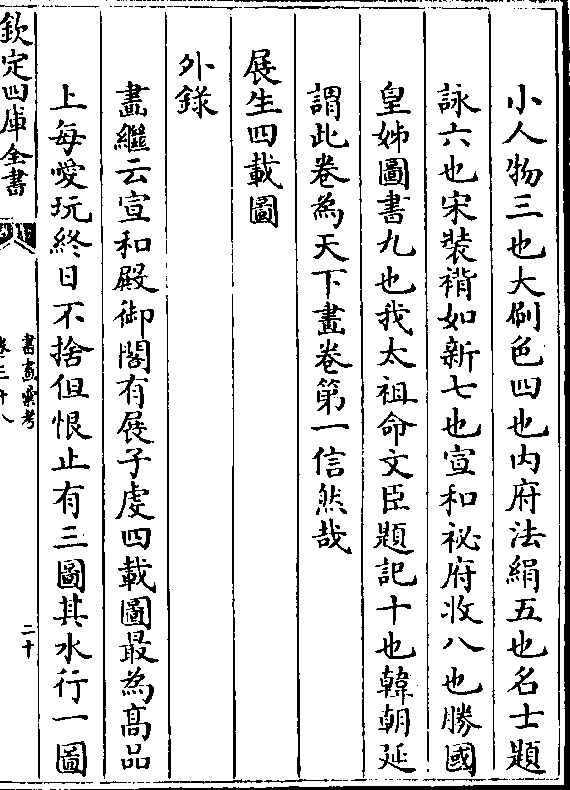 小人物三也大刷色四也内府法絹五也名士題
詠六也宋裝褙如新七也宣和祕府收八也勝國
皇姊圖書九也我太祖命文臣題記十也韓朝延
謂此卷為天下畫卷第一信然哉
展生四載圖
外錄
畫繼云宣和殿御閣有展子虔四載圖最為髙品
上每愛玩終日不捨但恨止有三圖其水行一圖
欽定四庫全書
書畫彚考
卷三十八
二十